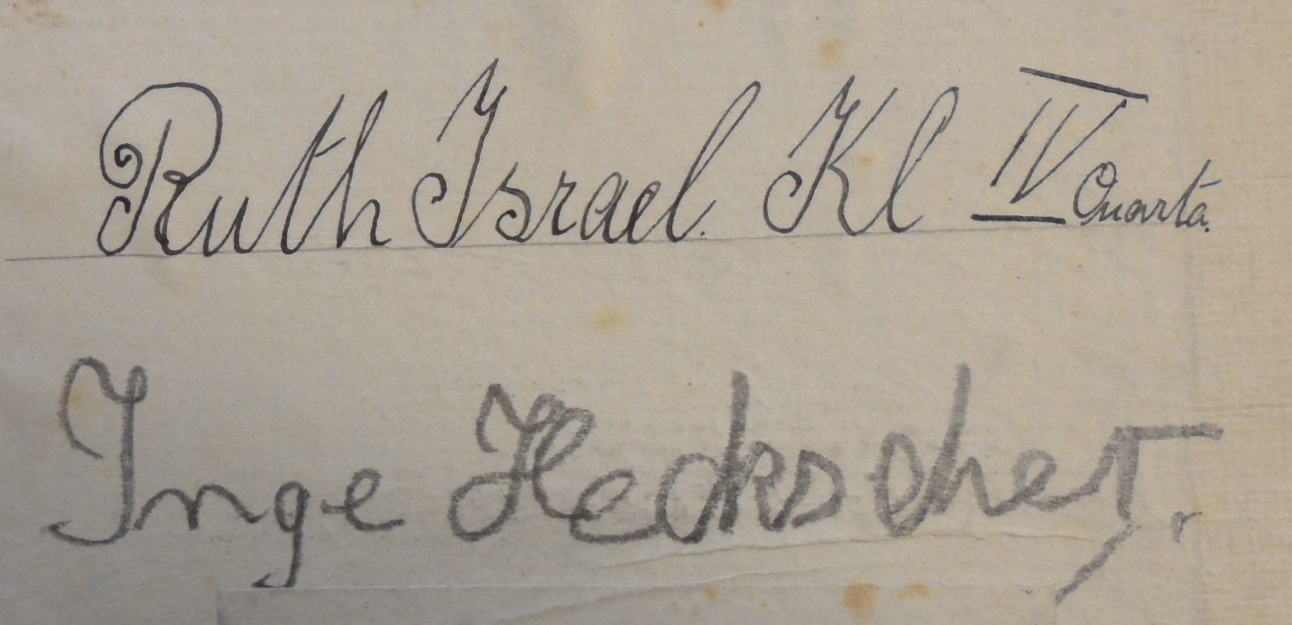 Ruth Israel. Kl IV Quarta.
Inge Heckscher.